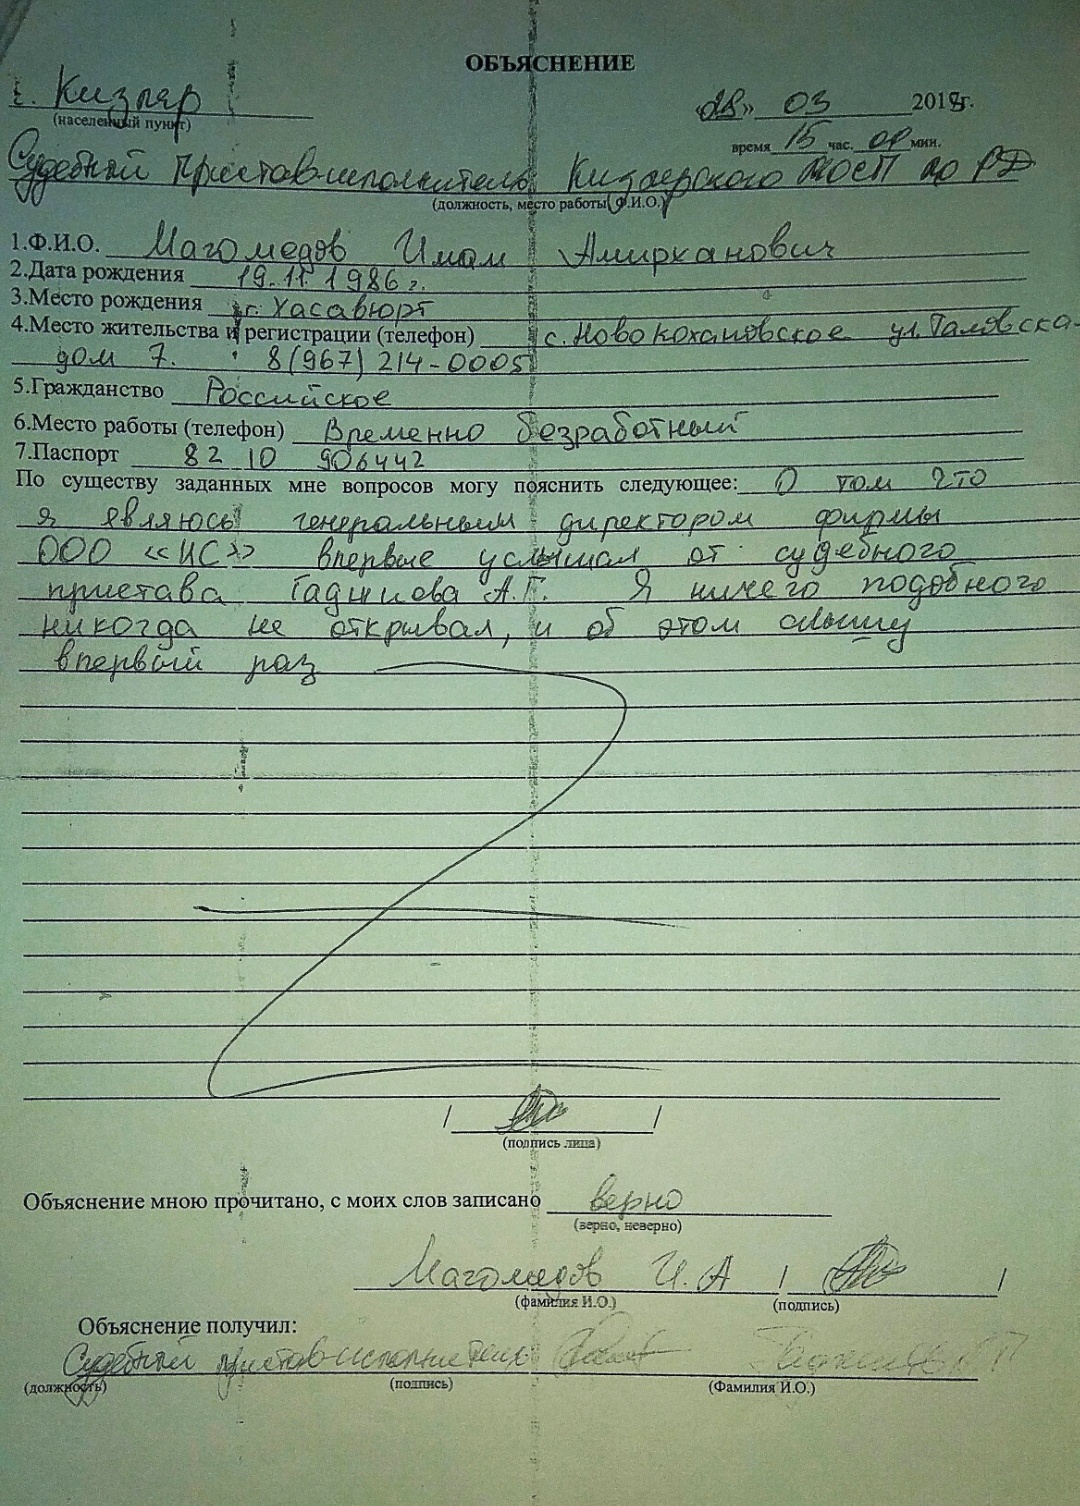 ОБЪЯСНЕНИЕ
г. Кизляр «28» 03 2018г.
(населенный пункт)
время 15 час. 00 мин.
Судебный пристав-исполнитель Кизлярского МОСП по РД
(должность, место работы Ф.И.О.)
1.Ф.И.О. Магомедов Имам Амирханович
2.Дата рождения 19.11.1986г.
3.Место рождения г. Хасавюрт
4.Место жительства и регистрации (телефон) с. Новокохановское ул. Таловска-
дом 7. 8(967) 214-0005
5.Гражданство Российское
6.Место работы (телефон) Временно безработный
7.Паспорт 82 10 906442
По существу заданных мне вопросов могу пояснить следующее: О том что
я являюсь генеральным директором фирмы
ООО «ИС» впервые услышал от судебного
пристава Гаджиева А.Г. Я ничего подобного
никогда не открывал, и об этом слышу
впервый раз
/ /
(подпись лица)
Объяснение мною прочитано, с моих слов записано верно
(верно, неверно)
Магомедов И.А / /
(фамилия И.О.) (подпись)
Объяснение получил:
Судебный пристав-исполнитель
(должность) (подпись) (Фамилия И.О.)